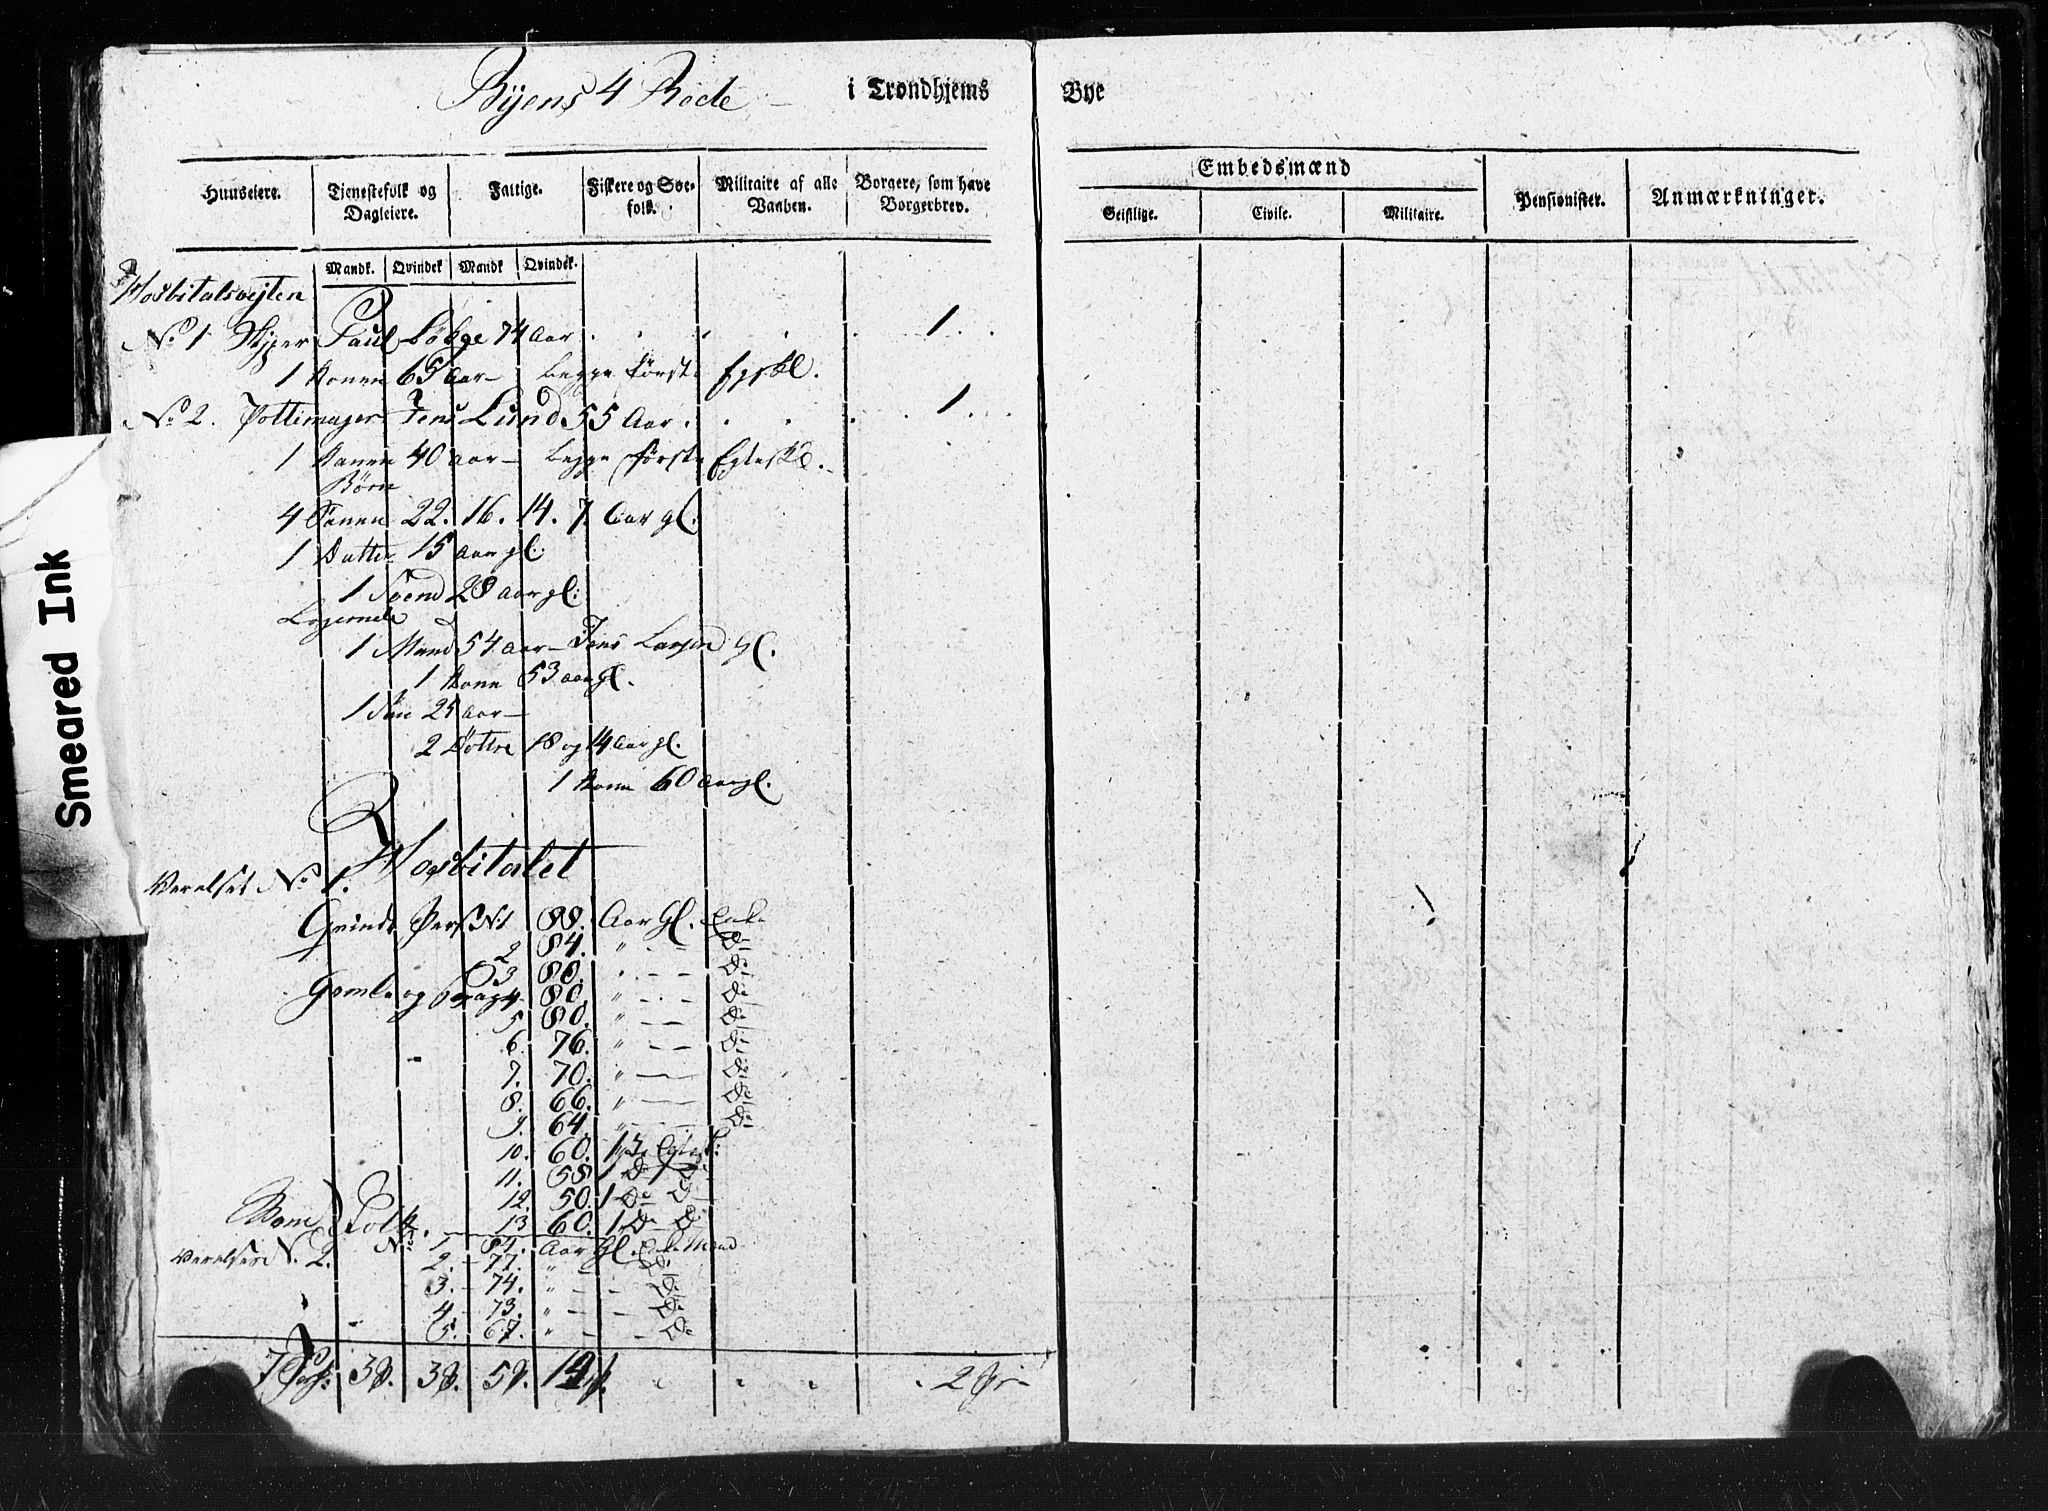 Byens 4 Rode i Trondhjems Bye
Huuseiere. Tjenestefolk og Dagleiere. Fattige. Fiskere og Søefolk. Militaire af alle Vaaben. Borgere, som have Borgerbrev.
Embedsmænd
Geistlige. Civile. Militaire. Pensionister. Anmærkninger.
Mandk. Qvindek Mandk Qvindek.
Hosbitalsvejten
No 1 Skiper Paul Løkge 74 Aar . . . . 1.
1 Konen 65 Aar - begge første Egskl.
No 2. Pottemager Jens Lund 55 Aar . . . . 1.
1 Konen 40 Aar - begge første Egteskl.
Børn
4 Sønner 22. 16. 14. 7. Aar gl.
1 Datter 15 Aar gl.
1 Svend 28 Aar gl.
Logerende
1 Mand 54 Aar - Jens Larsen gl.
1 Kone 53 Aar gl.
1 Søn 25 Aar -
2 Døttre 18 og 14 Aar gl.
1 Kone 60 Aar gl.
Hosbitalet
Værelset No 1.
Qvinde Pers N 1 88. Aar Gl. Enke
2 84. " - - Do
3 80. " - - Do
Gamle og Svage 4 80. " - - Do
5 80. " - - Do
6. 76. " - - Do
7. 70. " - - Do
8. 66. " - - Do
9. 64. " - - Do
10. 60. 1ste Egtesk.
11. 58 1 Do Do
12. 50. 1 Do Do
13 60. 1 Do Do
Mand Folk.
Værelset N. 2. No 1. 84. Aar Gl. Enke Mand
2. - 77. " - Do
3. - 74. " - - Do
4 - 73. " - - Do
5. - 67. " - - Do
7 38. 38. 59. 14 . . . . 2
Smeared Ink